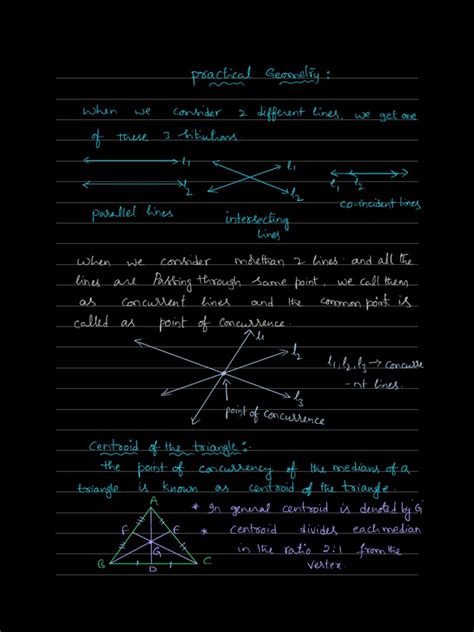 practical Geometry:
When we consider 2 different lines, we get one
of these 3 situtions.
l1
l2
parallel lines
l1
l2
intersecting
lines
l1 l2
co-incident lines
When we consider morethan 2 lines and all the
lines are Passing through same point, we call them
as concurrent lines and the common point is
called as point of concurrence.
l1
l2
l3
point of concurrence
l1, l2, l3 → concurre
-nt lines.
Centroid of the triangle:-
the point of concurrency of the medians of a
triangle is known as centroid of the triangle.
A
F E
G
B D C
* In general centroid is denoted by 'G'
* centroid divides each median
in the ratio 2:1 from the
vertex.